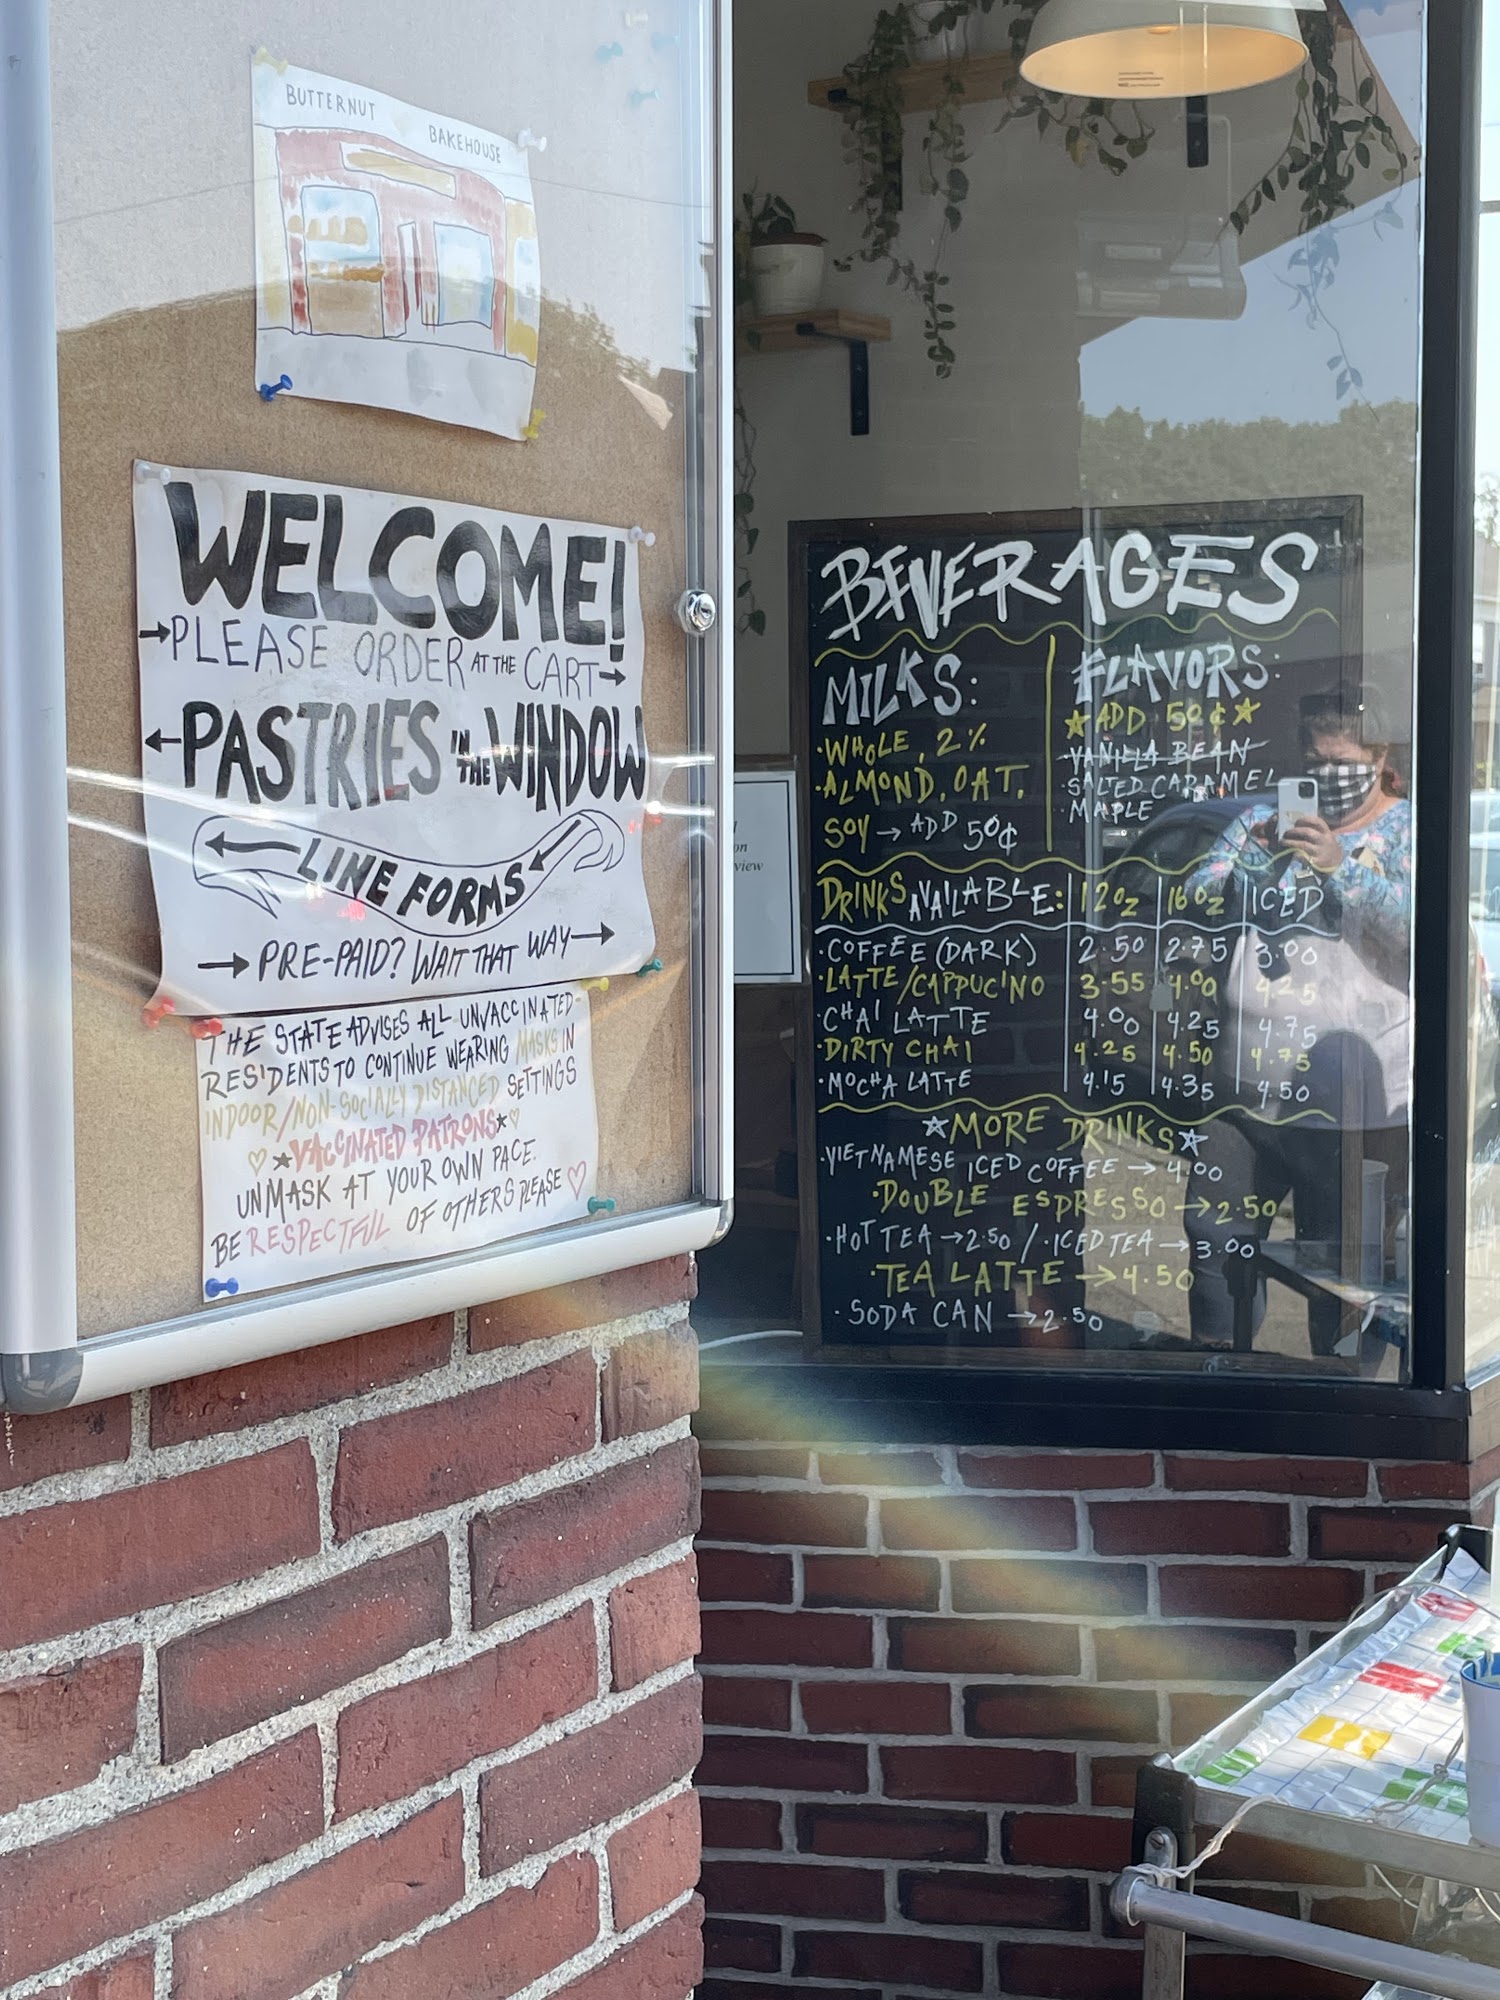 BUTTERNUT BAKEHOUSE
WELCOME!
→PLEASE ORDER AT THE CART→
←PASTRIES IN THE WINDOW
← LINE FORMS ←
→ PRE-PAID? WAIT THAT WAY →
THE STATE ADVISES ALL UNVACCINATED
RESIDENTS TO CONTINUE WEARING MASKS IN
INDOOR/NON-SOCIALLY DISTANCED SETTINGS
♡ ★VACCINATED PATRONS★♡
UNMASK AT YOUR OWN PACE.
BE RESPECTFUL OF OTHERS PLEASE ♡
on
view
BEVERAGES
MILKS:
·WHOLE, 2%
·ALMOND, OAT,
SOY → ADD 50¢
FLAVORS:
★ADD 50¢★
VANILLA BEAN
·SALTED CARAMEL
·MAPLE
DRINKS AVAILABLE: 12oz 16oz ICED
·COFFEE (DARK) 2.50 2.75 3.00
·LATTE/CAPPUCINO 3.55 4.00 4.25
·CHAI LATTE 4.00 4.25 4.75
·DIRTY CHAI 4.25 4.50 4.75
·MOCHA LATTE 4.15 4.35 4.50
★MORE DRINKS★
·VIETNAMESE ICED COFFEE → 4.00
·DOUBLE ESPRESSO → 2.50
·HOT TEA → 2.50 / ·ICED TEA → 3.00
·TEA LATTE → 4.50
·SODA CAN → 2.50